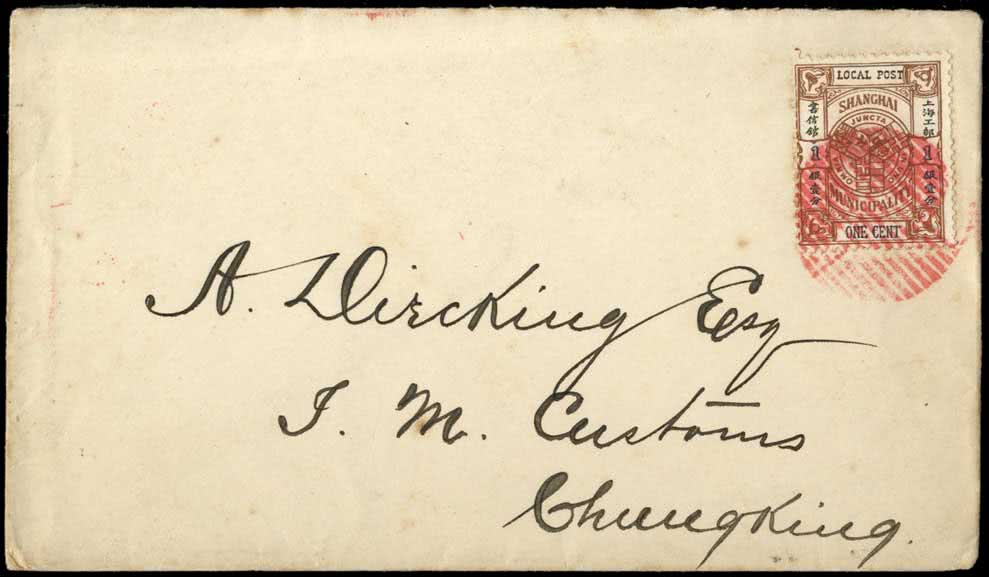 LOCAL POST
SHANGHAI
JUNCTA
上海工部
書信館
1 1
銀壹分
銀壹分
MUNICIPALITY
ONE CENT
A. Dircking Esq
I. M. Customs
Chungking.